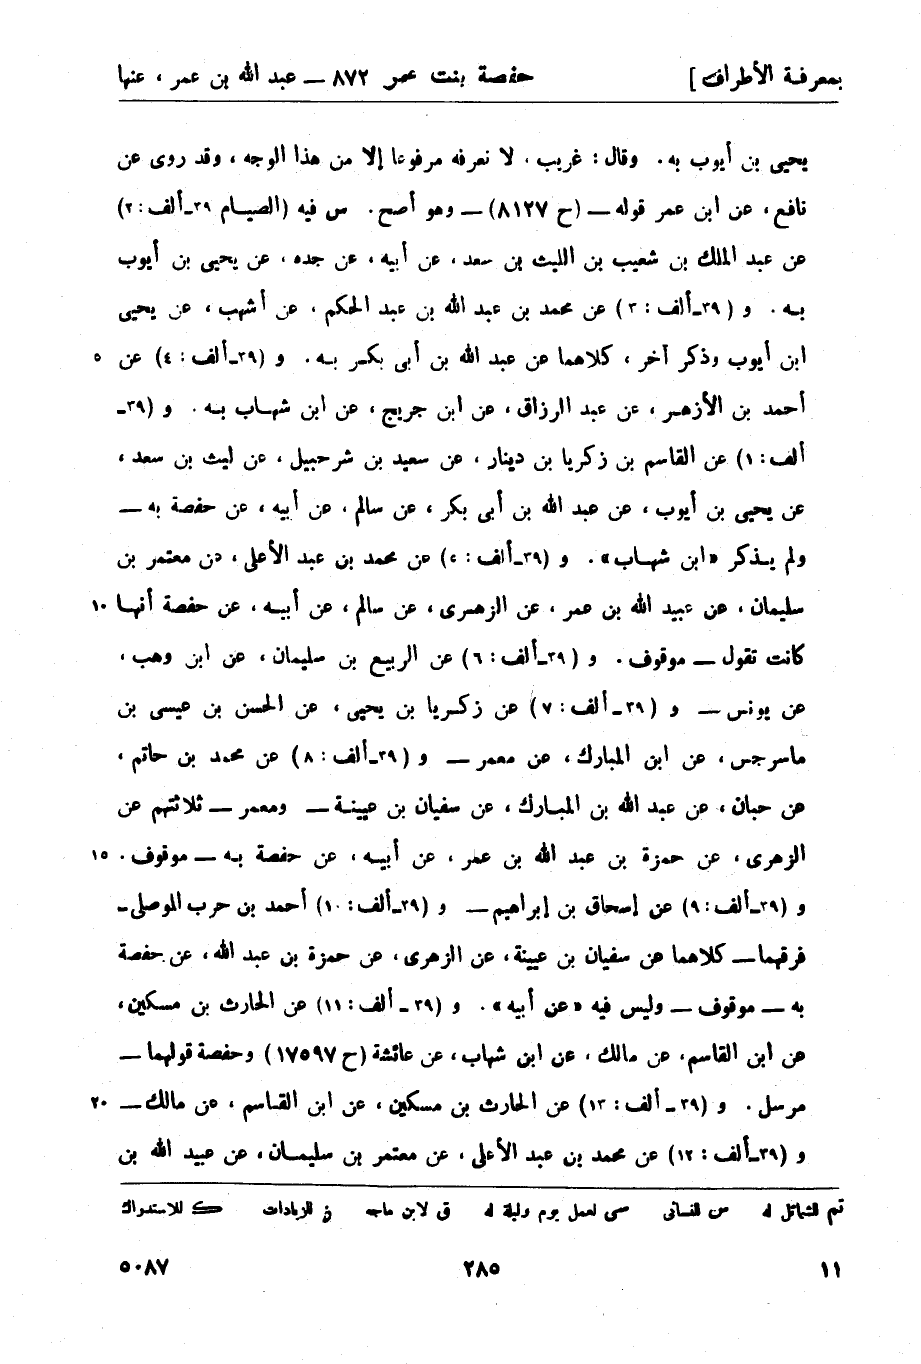 بمعرفة الأطراف] حفصة بنت عمر ٨٧٢ ــ عبد الله بن عمر ، عنها
يحيى بن أيوب به. وقال: غريب، لا نعرفه مرفوعا إلا من هذا الوجه، وقد روى عن
نافع، عن ابن عمر قوله ــ (ح ٨١٢٧) ــ وهو أصح. س فيه (الصيام ٣٩ـألف: ٢)
عن عبد الملك بن شعيب بن الليث بن سعد، عن أبيه، عن جده، عن يحيى بن أيوب
بـه. و (٣٩ـألف: ٣) عن محمد بن عبد الله بن عبد الحكم، عن أشهب، عن يحيى
ابن أيوب وذكر آخر، كلاهما عن عبد الله بن أبى بكر بـه. و (٣٩ـألف: ٤) عن ٥
أحمد بن الأزهـر، عن عبد الرزاق، عن ابن جريج، عن ابن شهـاب بـه. و (٣٩ـ
ألف: ١) عن القاسم بن زكريا بن دينار، عن سعيد بن شرحبيل، عن ليث بن سعد،
عن يحيى بن أيوب، عن عبد الله بن أبى بكر، عن سالم، عن أبيه، عن حفصة به ــ
ولم يـذكر «ابن شهـاب». و (٣٩ـألف: ٥) عن محمد بن عبد الأعلى، عن معتمر بن
سليمان، عن عبيد الله بن عمر، عن الزهـرى، عن سالم، عن أبيـه، عن حفصة أنهـا ١٠
كانت تقول ــ موقوف. و (٣٩ـألف: ٦) عن الربيع بن سليمان، عن ابن وهب،
عن يونس ــ و (٣٩ـألف: ٧) عن زكـريا بن يحيى، عن الحسن بن عيسى بن
ماسرجس، عن ابن المبارك، عن معمر ــ و (٣٩ـألف: ٨) عن محمد بن حاتم،
عن حبان، عن عبد الله بن المبـارك، عن سفيان بن عيينـة ــ ومعمر ــ ثلاثتهم عن
الزهرى، عن حمزة بن عبد الله بن عمر، عن أبيـه، عن حفصة بـه ــ موقوف. ١٥
و (٣٩ـألف: ٩) عن إسحاق بن إبراهيم ــ و (٣٩ـألف: ١٠) أحمد بن حرب الموصلى ـ
فرقهما ــ كلاهما عن سفيان بن عيينة، عن الزهرى، عن حمزة بن عبد الله، عن حفصة
به ــ موقوف ــ وليس فيه «عن أبيه». و (٣٩ ـ ألف: ١١) عن الحارث بن مسكين،
عن ابن القاسم، عن مالك، عن ابن شهاب، عن عائشة (ح ١٧٥٩٧) وحفصة قولهما ــ
مرسل. و (٣٩ ـ ألف: ١٣) عن الحارث بن مسكين، عن ابن القـاسم، عن مالك ــ ٢٠
و (٣٩ـألف: ١٢) عن محمد بن عبد الأعلى، عن معتمر بن سليمـان، عن عبيد الله بن
تم للشمائل له س للنسائى سى لعمل يوم وليلة له ق لابن ماجه ز للزيادات ك للاستدراك
١١ ٢٨٥ ٥٠٨٧